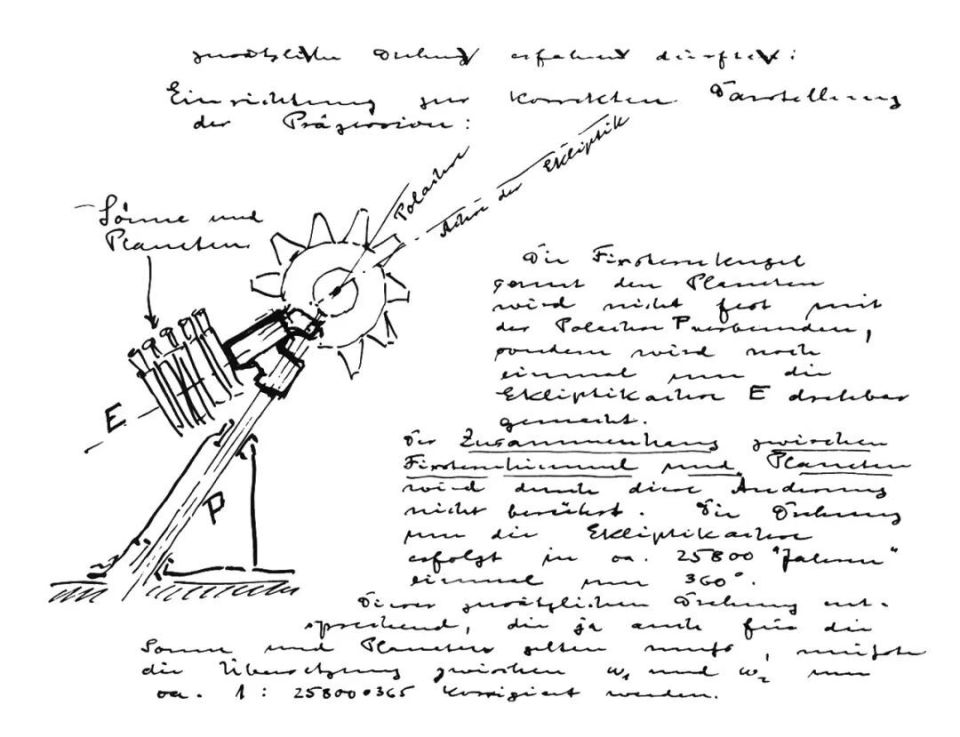 zusätzliche Drehung erfahren dürfte:
Einrichtung zur korrekten Darstellung
der Präzession:
Polachse
Achse der Ekliptik
Sonne und
Planeten
Die Fixsternkugel
samt den Planeten
wird nicht fest mit
der Polachse P verbunden,
sondern wird noch
einmal um die
Ekliptikachse E drehbar
gemacht.
E
Der Zusammenhang zwischen
Fixsternhimmel und Planeten
wird durch diese Änderung
nicht berührt. Die Drehung
um die Ekliptikachse
erfolgt in ca. 25800 "Jahren"
einmal um 360°.
P
Dieser zusätzlichen Drehung ent-
sprechend, die ja auch für die
Sonne und Planeten gelten muß, müßte
die Übersetzung zwischen ω₁ und ω₂ um
ca. 1 : 25800•365 korrigiert werden.